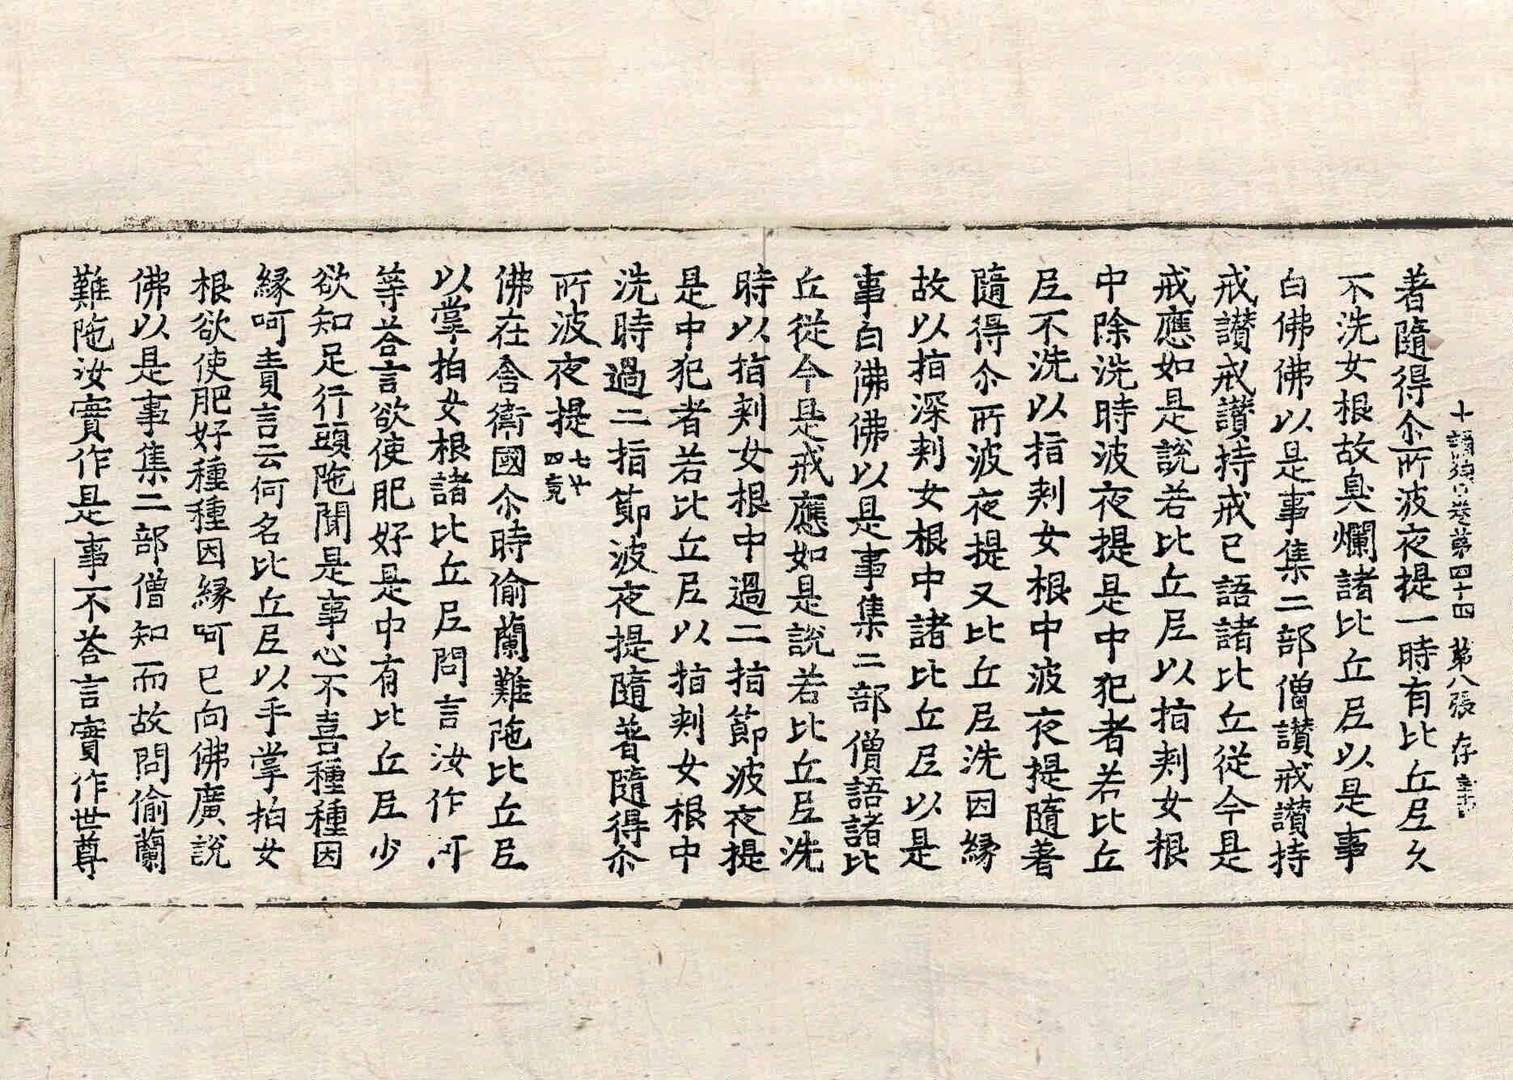 十誦律卷第四十四 第八張 存
著隨得尒所波夜提一時有比丘尼久
不洗女根故臭爛諸比丘尼以是事
白佛佛以是事集二部僧讃戒讃持
戒讃戒讃持戒已語諸比丘從今是
戒應如是說若比丘尼以指刾女根
中除洗時波夜提是中犯者若比丘
尼不洗以指刾女根中波夜提隨著
隨得尒所波夜提又比丘尼洗因緣
故以指深刾女根中諸比丘尼以是
事白佛佛以是事集二部僧語諸比
丘從今是戒應如是說若比丘尼洗
時以指刾女根中過二指節波夜提
是中犯者若比丘尼以指刾女根中
洗時過二指節波夜提隨著隨得尒
所波夜提 七十四竟
佛在舍衛國尒時偷蘭難陁比丘尼
以掌拍女根諸比丘尼問言汝作何
等荅言欲使肥好是中有比丘尼少
欲知足行頭陁聞是事心不喜種種因
緣呵責言云何名比丘尼以手掌拍女
根欲使肥好種種因緣呵已向佛廣說
佛以是事集二部僧知而故問偷蘭
難陁汝實作是事不荅言實作世尊